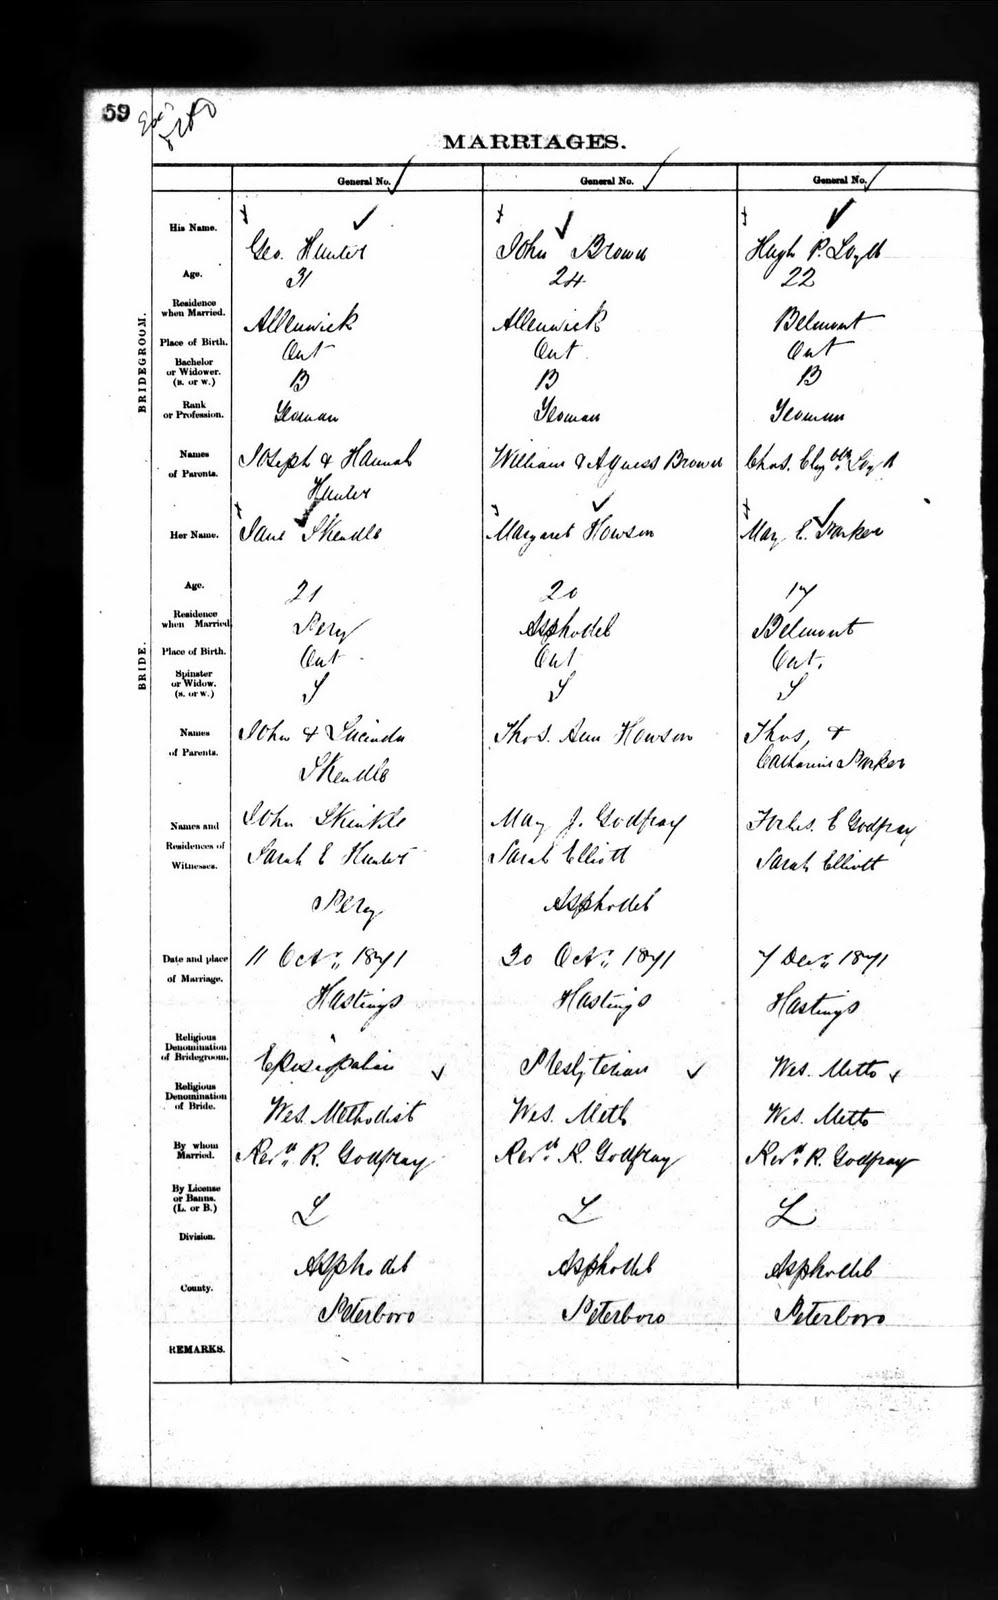 59
MARRIAGES.
General No. General No. General No.
BRIDEGROOM.
His Name. Geo. Hunter John Brown Hugh P. Loyd
Age. 31 24 22
Residence
when Married. Allenwick Allenwick Belmont
Place of Birth. Ont Ont Ont
Bachelor
or Widower.
(B. or W.) B B B
Rank
or Profession. Yeoman Yeoman Yeoman
Names
of Parents. Joseph & Hannah William & Agness Brown Chas. Loyd
Hunter
BRIDE.
Her Name. Jane Skendle Margaret Howson Mary E. Parker
Age. 21 20 17
Residence
when Married Percy Asphodel Belmont
Place of Birth. Ont Ont Ont.
Spinster
or Widow.
(S. or W.) S S S
Names
of Parents. John & Lucinda Thos. Ann Howson Thos, &
Skendle Catharine Parker
Names and John Skinkle Mary J. Godfray Forbes. E Godfray
Residences of
Witnesses. Sarah E Hunter Sarah Elliott Sarah Elliott
Percy Asphodel
Date and place 11 Oct. 1871 30 Oct. 1871 7 Dec. 1871
of Marriage. Hastings Hastings Hastings
Religious
Denomination
of Bridegroom. Episcopalian Presbyterian Wes. Metho
Religious
Denomination
of Bride. Wes. Methodist Wes. Meth Wes. Metho
By whom
Married. Revd. R. Godfray Revd. R. Godfray Revd. R. Godfray
By License
or Banns.
(L. or B.) L L L
Division. Asphodel Asphodel Asphodel
County. Peterboro Peterboro Peterboro
REMARKS.